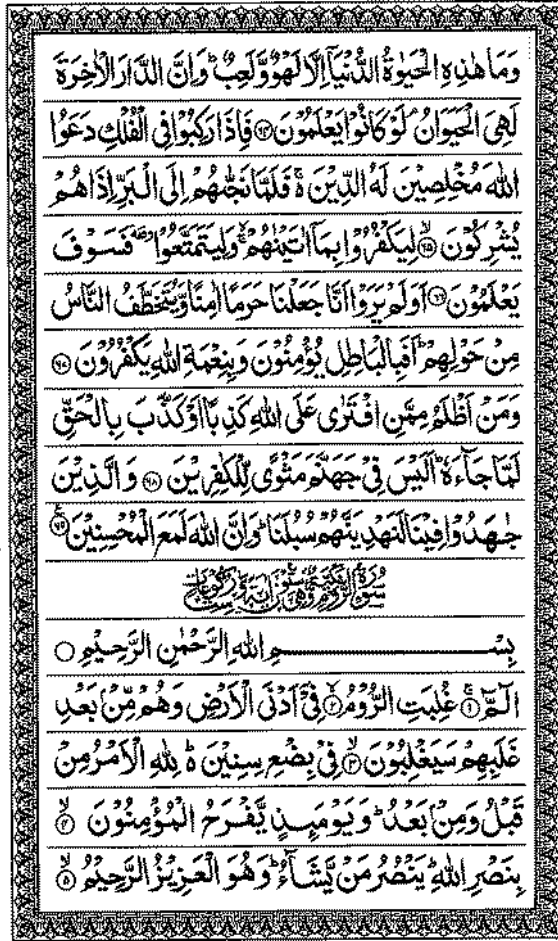 وَمَا هٰذِهِ الْحَيٰوةُ الدُّنْيَاۤ اِلَّا لَهْوٌ وَّلَعِبٌ ؕ وَاِنَّ الدَّارَ الْاٰخِرَةَ
لَهِيَ الْحَيَوَانُ ۘ لَوْ كَانُوْا يَعْلَمُوْنَ ﴿۶۴﴾ فَاِذَا رَكِبُوْا فِي الْفُلْكِ دَعَوُا
اللّٰهَ مُخْلِصِيْنَ لَهُ الدِّيْنَ ۬ۚ فَلَمَّا نَجّٰىهُمْ اِلَى الْبَرِّ اِذَا هُمْ
يُشْرِكُوْنَ ﴿۶۵﴾ۙ لِيَكْفُرُوْا بِمَاۤ اٰتَيْنٰهُمْ ۙۚ وَلِيَتَمَتَّعُوْا ۥ فَسَوْفَ
يَعْلَمُوْنَ ﴿۶۶﴾ اَوَلَمْ يَرَوْا اَنَّا جَعَلْنَا حَرَمًا اٰمِنًا وَّيُتَخَطَّفُ النَّاسُ
مِنْ حَوْلِهِمْ ؕ اَفَبِالْبَاطِلِ يُؤْمِنُوْنَ وَبِنِعْمَةِ اللّٰهِ يَكْفُرُوْنَ ﴿۶۷﴾
وَمَنْ اَظْلَمُ مِمَّنِ افْتَرٰى عَلَى اللّٰهِ كَذِبًا اَوْ كَذَّبَ بِالْحَقِّ
لَمَّا جَآءَهٗ ؕ اَلَيْسَ فِيْ جَهَنَّمَ مَثْوًى لِّلْكٰفِرِيْنَ ﴿۶۸﴾ وَالَّذِيْنَ
جٰهَدُوْا فِيْنَا لَنَهْدِيَنَّهُمْ سُبُلَنَا ؕ وَاِنَّ اللّٰهَ لَمَعَ الْمُحْسِنِيْنَ ﴿۶۹﴾
سُوْرَةُ الرُّوْمِ مَكِّيَّةٌ وَّهِيَ سِتُّوْنَ اٰيَةً وَّ سِتُّ رُكُوْعَاتٍ
بِسْمِ اللّٰهِ الرَّحْمٰنِ الرَّحِيْمِ ○
الٓمّٓ ﴿۱﴾ۚ غُلِبَتِ الرُّوْمُ ﴿۲﴾ۙ فِيْۤ اَدْنَى الْاَرْضِ وَهُمْ مِّنْۢ بَعْدِ
غَلَبِهِمْ سَيَغْلِبُوْنَ ﴿۳﴾ۙ فِيْ بِضْعِ سِنِيْنَ ۬ؕ لِلّٰهِ الْاَمْرُ مِنْ
قَبْلُ وَمِنْۢ بَعْدُ ؕ وَيَوْمَئِذٍ يَّفْرَحُ الْمُؤْمِنُوْنَ ﴿۴﴾ۙ
بِنَصْرِ اللّٰهِ ؕ يَنْصُرُ مَنْ يَّشَآءُ ؕ وَهُوَ الْعَزِيْزُ الرَّحِيْمُ ﴿۵﴾ۙ